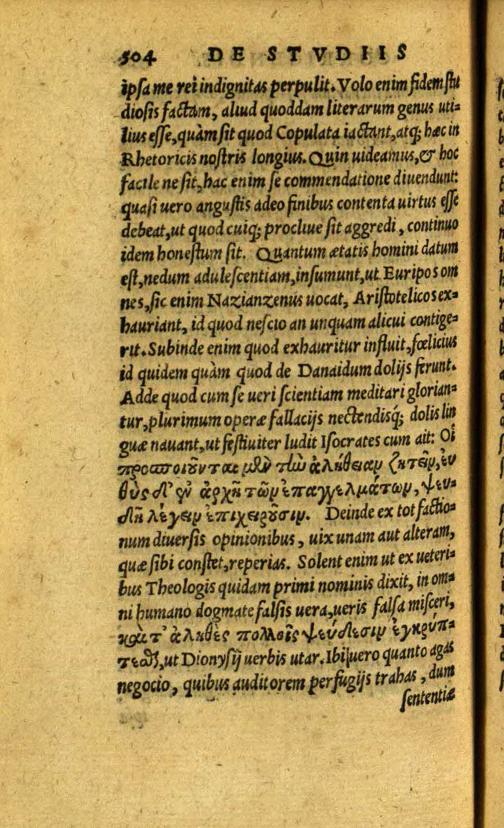 504 DE STVDIIS
ipſa me rei indignitas perpulit. Volo enim fidem ſtu
dioſis factam, aliud quoddam literarum genus uti-
lius eſſe, quàm ſit quod Copulata iactant, atq; hæc in
Rhetoricis noſtris longius. Quin uideamus, & hoc
facile ne ſit, hac enim ſe commendatione diuendunt:
quaſi uero anguſtis adeo finibus contenta uirtus eſſe
debeat, ut quod cuiq; procliue ſit aggredi, continuo
idem honeſtum ſit. Quantum ætatis homini datum
eſt, nedum aduleſcentiam, inſumunt, ut Euripos om
nes, ſic enim Nazianzenus uocat, Ariſtotelicos ex-
hauriant, id quod neſcio an unquam alicui contige-
rit. Subinde enim quod exhauritur influit, fœlicius
id quidem quàm quod de Danaidum dolijs ferunt.
Adde quod cum ſe ueri ſcientiam meditari glorian-
tur, plurimum operæ fallacijs nectendisq́; dolis lin
guæ nauant, ut feſtiuiter ludit Iſocrates cum ait: Οἳ
προσποιοῦνται μὲν τὴν ἀλήθειαν ζητεῖν, εὐ
θὺς δ' ἐν ἀρχῇ τῶν ἐπαγγελμάτων, ψευ-
δῆ λέγειν ἐπιχειροῦσιν. Deinde ex tot factio-
num diuerſis opinionibus, uix unam aut alteram,
quæ ſibi conſtet, reperias. Solent enim ut ex ueteri-
bus Theologis quidam primi nominis dixit, in om-
ni humano dogmate falſis uera, ueris falſa miſceri,
καὶ τ' ἀληθὲς πολλοῖς ψεύδεσιν ἐγκρύπ-
τεθς, ut Dionyſij uerbis utar. Ibi uero quanto agas
negocio, quibus auditorem perfugijs trahas, dum
ſententiæ